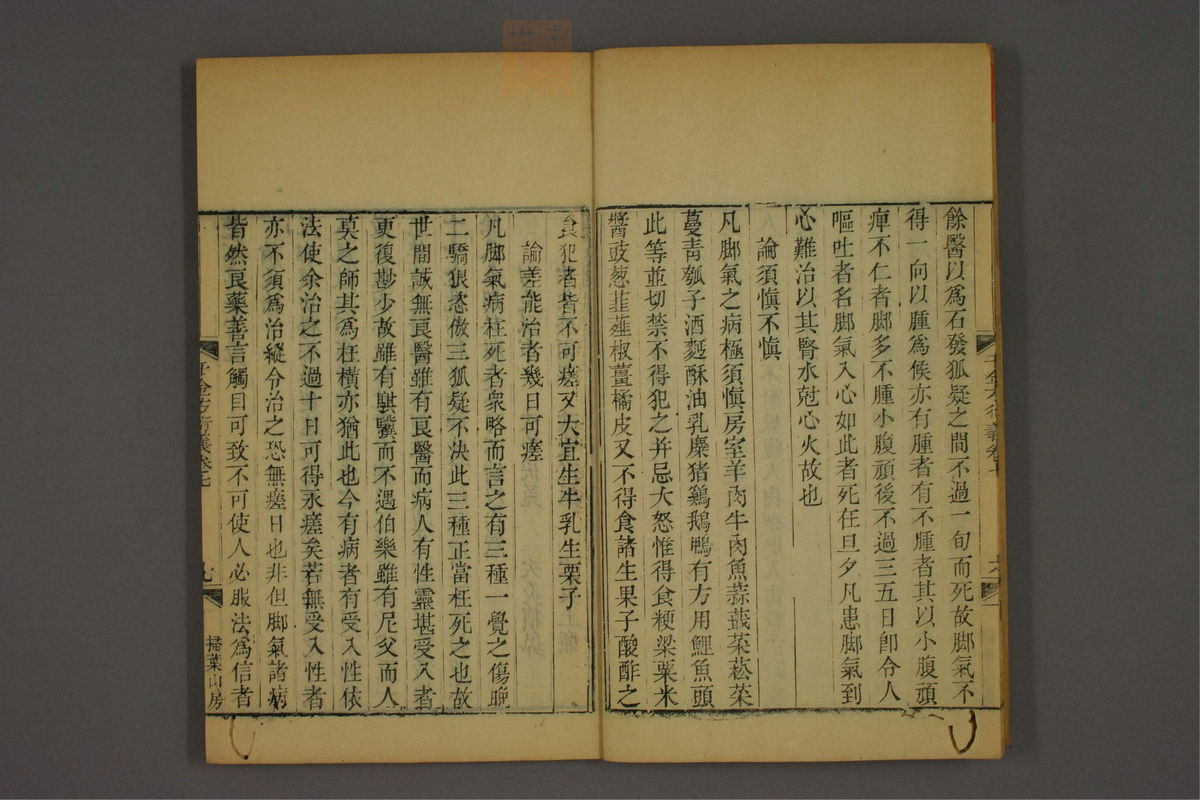 餘醫以為石發狐疑之間不過一旬而死故脚氣不
得一向以腫為候亦有腫者有不腫者其以小腹頑
痺不仁者脚多不腫小腹頑後不過三五日卽令人
嘔吐者名脚氣入心如此者死在旦夕凡患脚氣到
心難治以其腎水尅心火故也
論須愼不愼
凡脚氣之病極須愼房室羊肉牛肉魚蒜蕺菜菘菜
蔓青瓠子酒麪酥油乳糜猪鷄鵝鴨有方用鯉魚頭
此等並切禁不得犯之并忌大怒惟得食粳梁粟米
醬豉葱韮薤椒薑橘皮又不得食諸生果子酸酢之
食犯者皆不可瘥又大宜生牛乳生栗子
論差能治者幾日可瘥
凡脚氣病枉死者衆略而言之有三種一覺之傷晚
二驕狠恣傲三狐疑不決此三種正當枉死之也故
世間誠無良醫雖有良醫而病人有性靈堪受入者
更復尠少故雖有騏驥而不遇伯樂雖有尼父而人
莫之師其為枉橫亦猶此也今有病者有受入性依
法使余治之不過十日可得永瘥矣若無受入性者
亦不須為治縱令治之恐無瘥日也非但脚氣諸病
皆然良藥善言觸目可致不可使人必服法為信者
千金方衍義卷七
七
掃葉山房